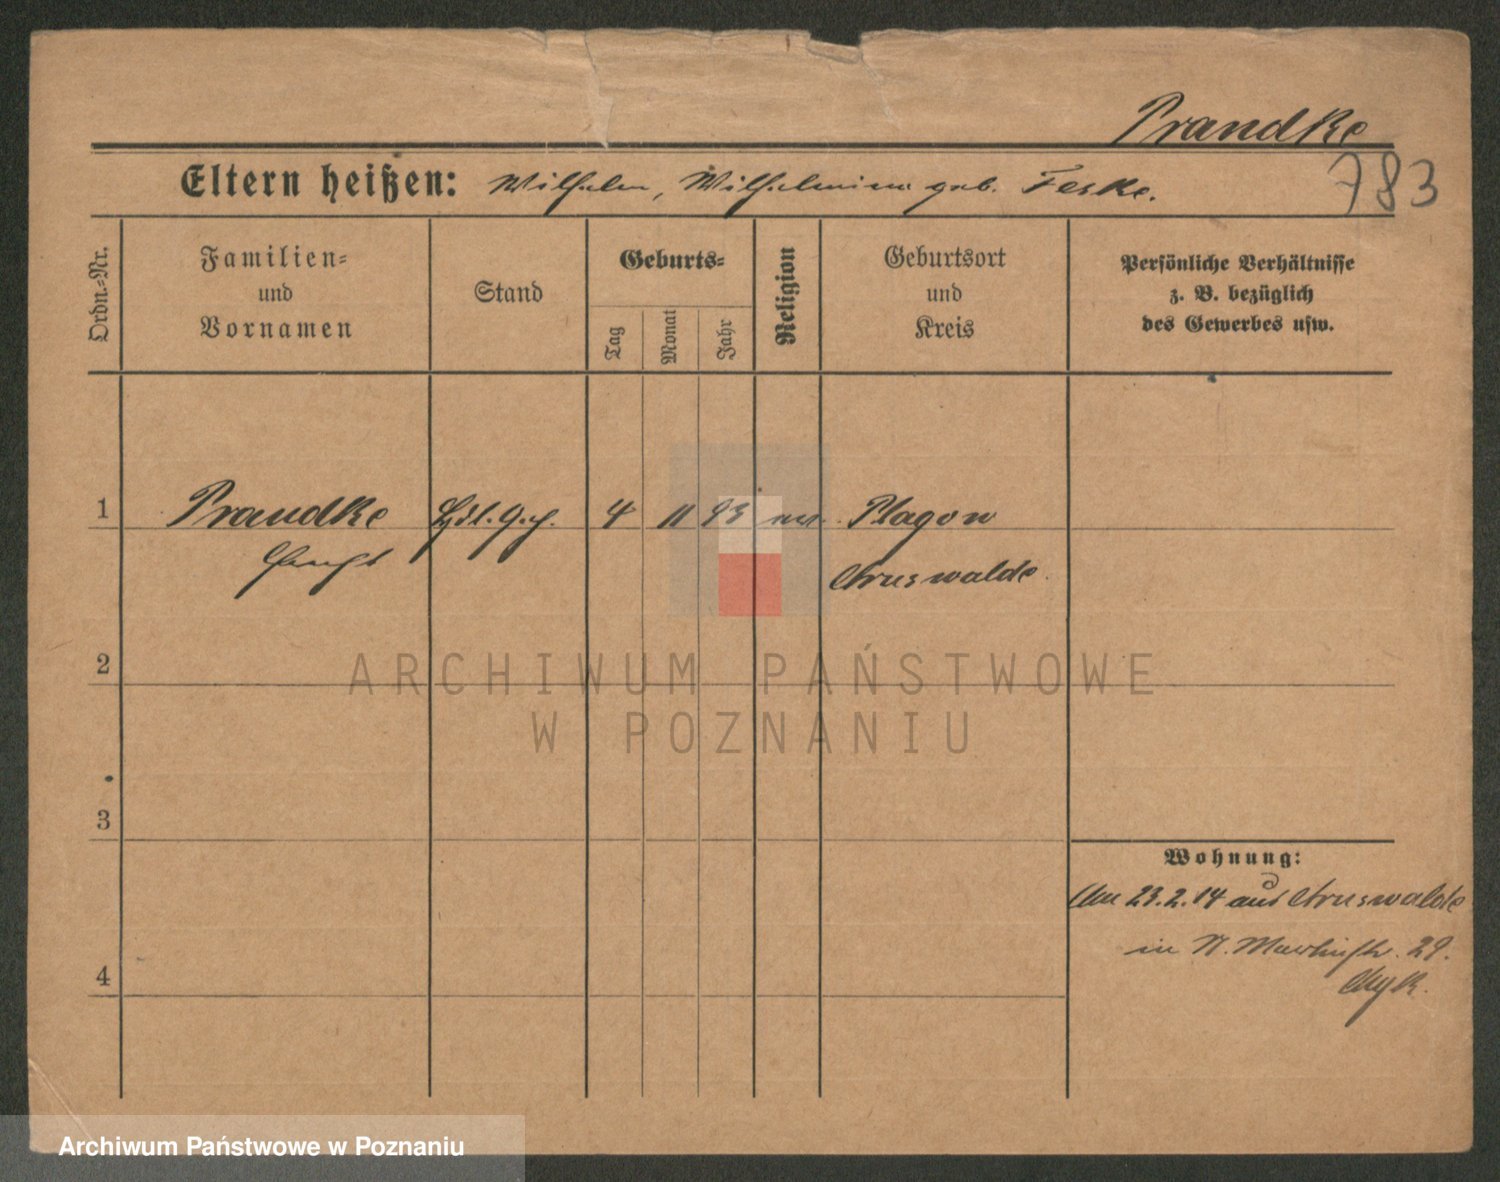 Prandke
783
Eltern heißen: Wilhelm, Wilhelmine geb. Feske.
Ordn.-Nr.
Familien-
und
Vornamen
Stand
Geburts-
Tag
Monat
Jahr
Religion
Geburtsort
und
Kreis
Persönliche Verhältnisse
z. B. bezüglich
des Gewerbes usw.
1 Prandke Hdl. G.h. 4 11 93 ev. Plagow
Arnswalde.
2
ARCHIWUM PAŃSTWOWE
W POZNANIU
3
Wohnung:
Am 23.2.14 aus Arnswalde
in N. Martinstr. 29.
4
Archiwum Państwowe w Poznaniu